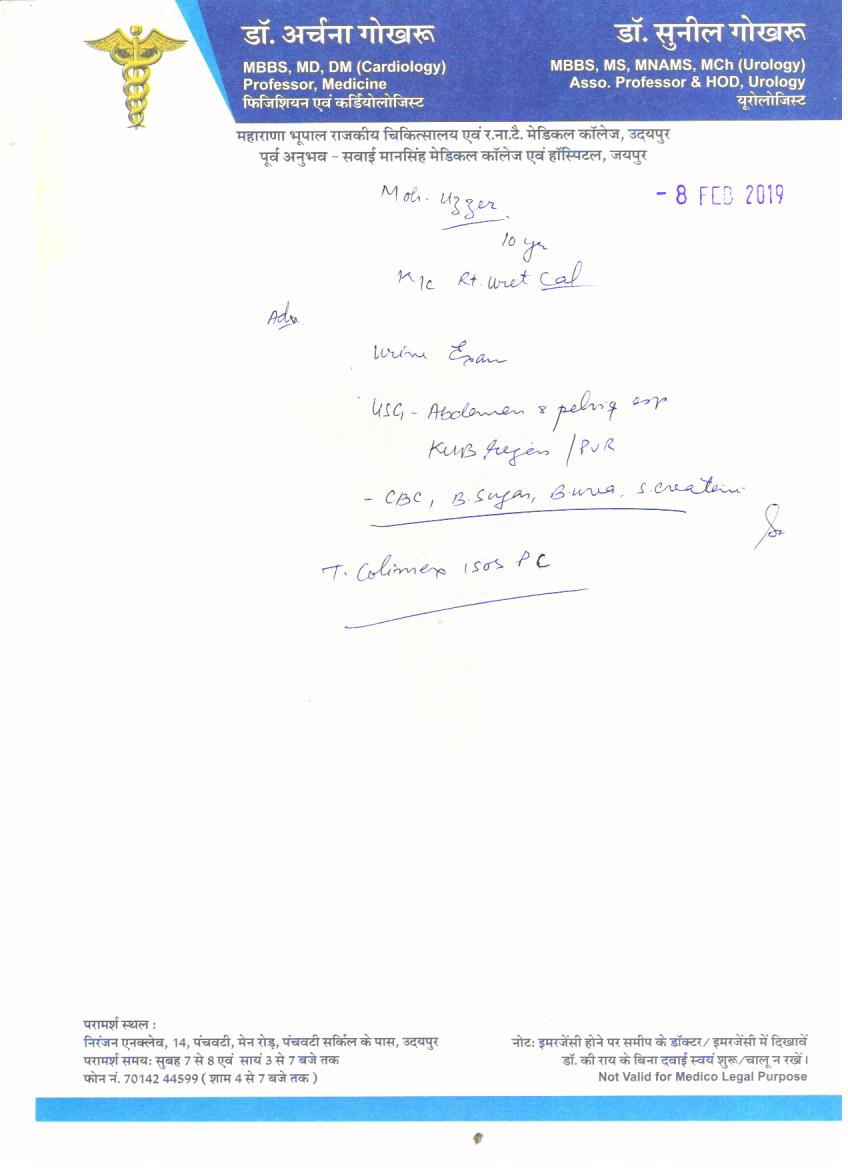 डॉ. अर्चना गोखरू
MBBS, MD, DM (Cardiology)
Professor, Medicine
फिजिशियन एवं कर्डियोलोजिस्ट
डॉ. सुनील गोखरू
MBBS, MS, MNAMS, MCh (Urology)
Asso. Professor & HOD, Urology
यूरोलोजिस्ट
महाराणा भूपाल राजकीय चिकित्सालय एवं र.ना.टै. मेडिकल कॉलेज, उदयपुर
पूर्व अनुभव - सवाई मानसिंह मेडिकल कॉलेज एवं हॉस्पिटल, जयपुर
- 8 FEB 2019
Moh. Uzzer
10 yr
K/c Rt. Uret Cal
Adv.
Urine Exam
USG - Abdomen & pelvis esp
KUB region / PVR
- CBC, B. Sugar, B. urea, S. creatin
T. Colimex 1 SOS PC
परामर्श स्थल :
निरंजन एनक्लेव, 14, पंचवटी, मेन रोड़, पंचवटी सर्किल के पास, उदयपुर
परामर्श समय: सुबह 7 से 8 एवं सायं 3 से 7 बजे तक
फोन नं. 70142 44599 ( शाम 4 से 7 बजे तक )
नोट: इमरजेंसी होने पर समीप के डॉक्टर/ इमरजेंसी में दिखावें
डॉ. की राय के बिना दवाई स्वयं शुरू/चालू न रखें।
Not Valid for Medico Legal Purpose